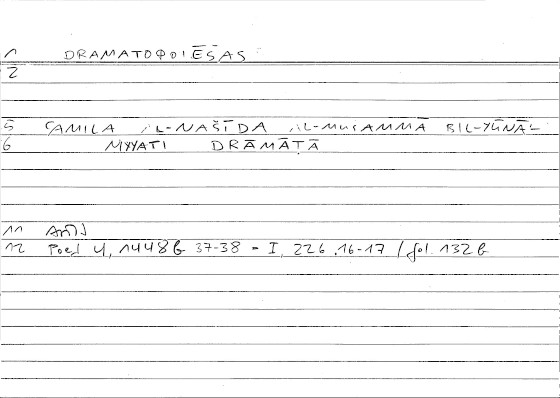 1 DRAMATOPOIĒSAS
2
5 ʿAMILA AL-NAŠĪDA AL-MUSAMMĀ BIL-YŪNĀ-
6 NIYYATI DRĀMĀṬĀ
11 Arist
12 Poet 4, 1448b 37-38 = I, 226.16-17 / fol. 132b